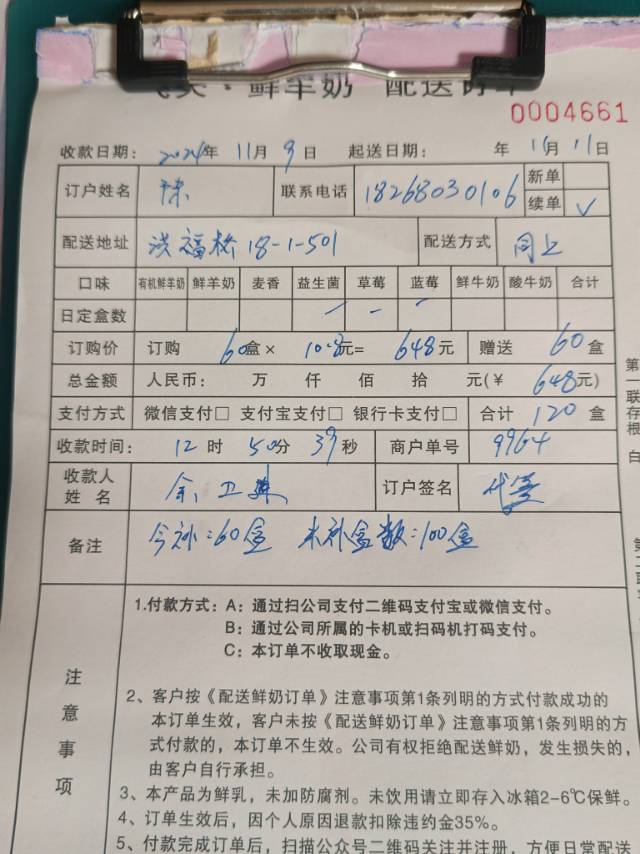 ·鲜羊奶 配送订单
0004661
收款日期: 2024年 11月 9日 起送日期: 年 11月 11日
订户姓名 陈 联系电话 18268030106 新单
续单 ✓
配送地址 洪福桥 18-1-501 配送方式 同上
口味 有机鲜羊奶 鲜羊奶 麦香 益生菌 草莓 蓝莓 鲜牛奶 酸牛奶 合计
日定盒数 一 一 一
订购价 订购 60盒× 10.8元= 648元 赠送 60盒
总金额 人民币: 万 仟 佰 拾 元(¥ 648元)
支付方式 微信支付□ 支付宝支付□ 银行卡支付□ 合计 120 盒
收款时间: 12时 50分 39秒 商户单号 9964
收款人姓名 余卫 订户签名 代签
备注 今补:60盒 未补盒数:100盒
注意事项
1.付款方式: A: 通过扫公司支付二维码支付宝或微信支付。
B: 通过公司所属的卡机或扫码机打码支付。
C: 本订单不收取现金。
2、客户按《配送鲜奶订单》注意事项第1条列明的方式付款成功的
本订单生效，客户未按《配送鲜奶订单》注意事项第1条列明的方
式付款的，本订单不生效。公司有权拒绝配送鲜奶，发生损失的，
由客户自行承担。
3、本产品为鲜乳，未加防腐剂。未饮用请立即存入冰箱2-6℃保鲜。
4、订单生效后，因个人原因退款扣除违约金35%。
5、付款完成订单后，扫描公众号二维码关注并注册，方便日常配送
第一联存根 白
第二